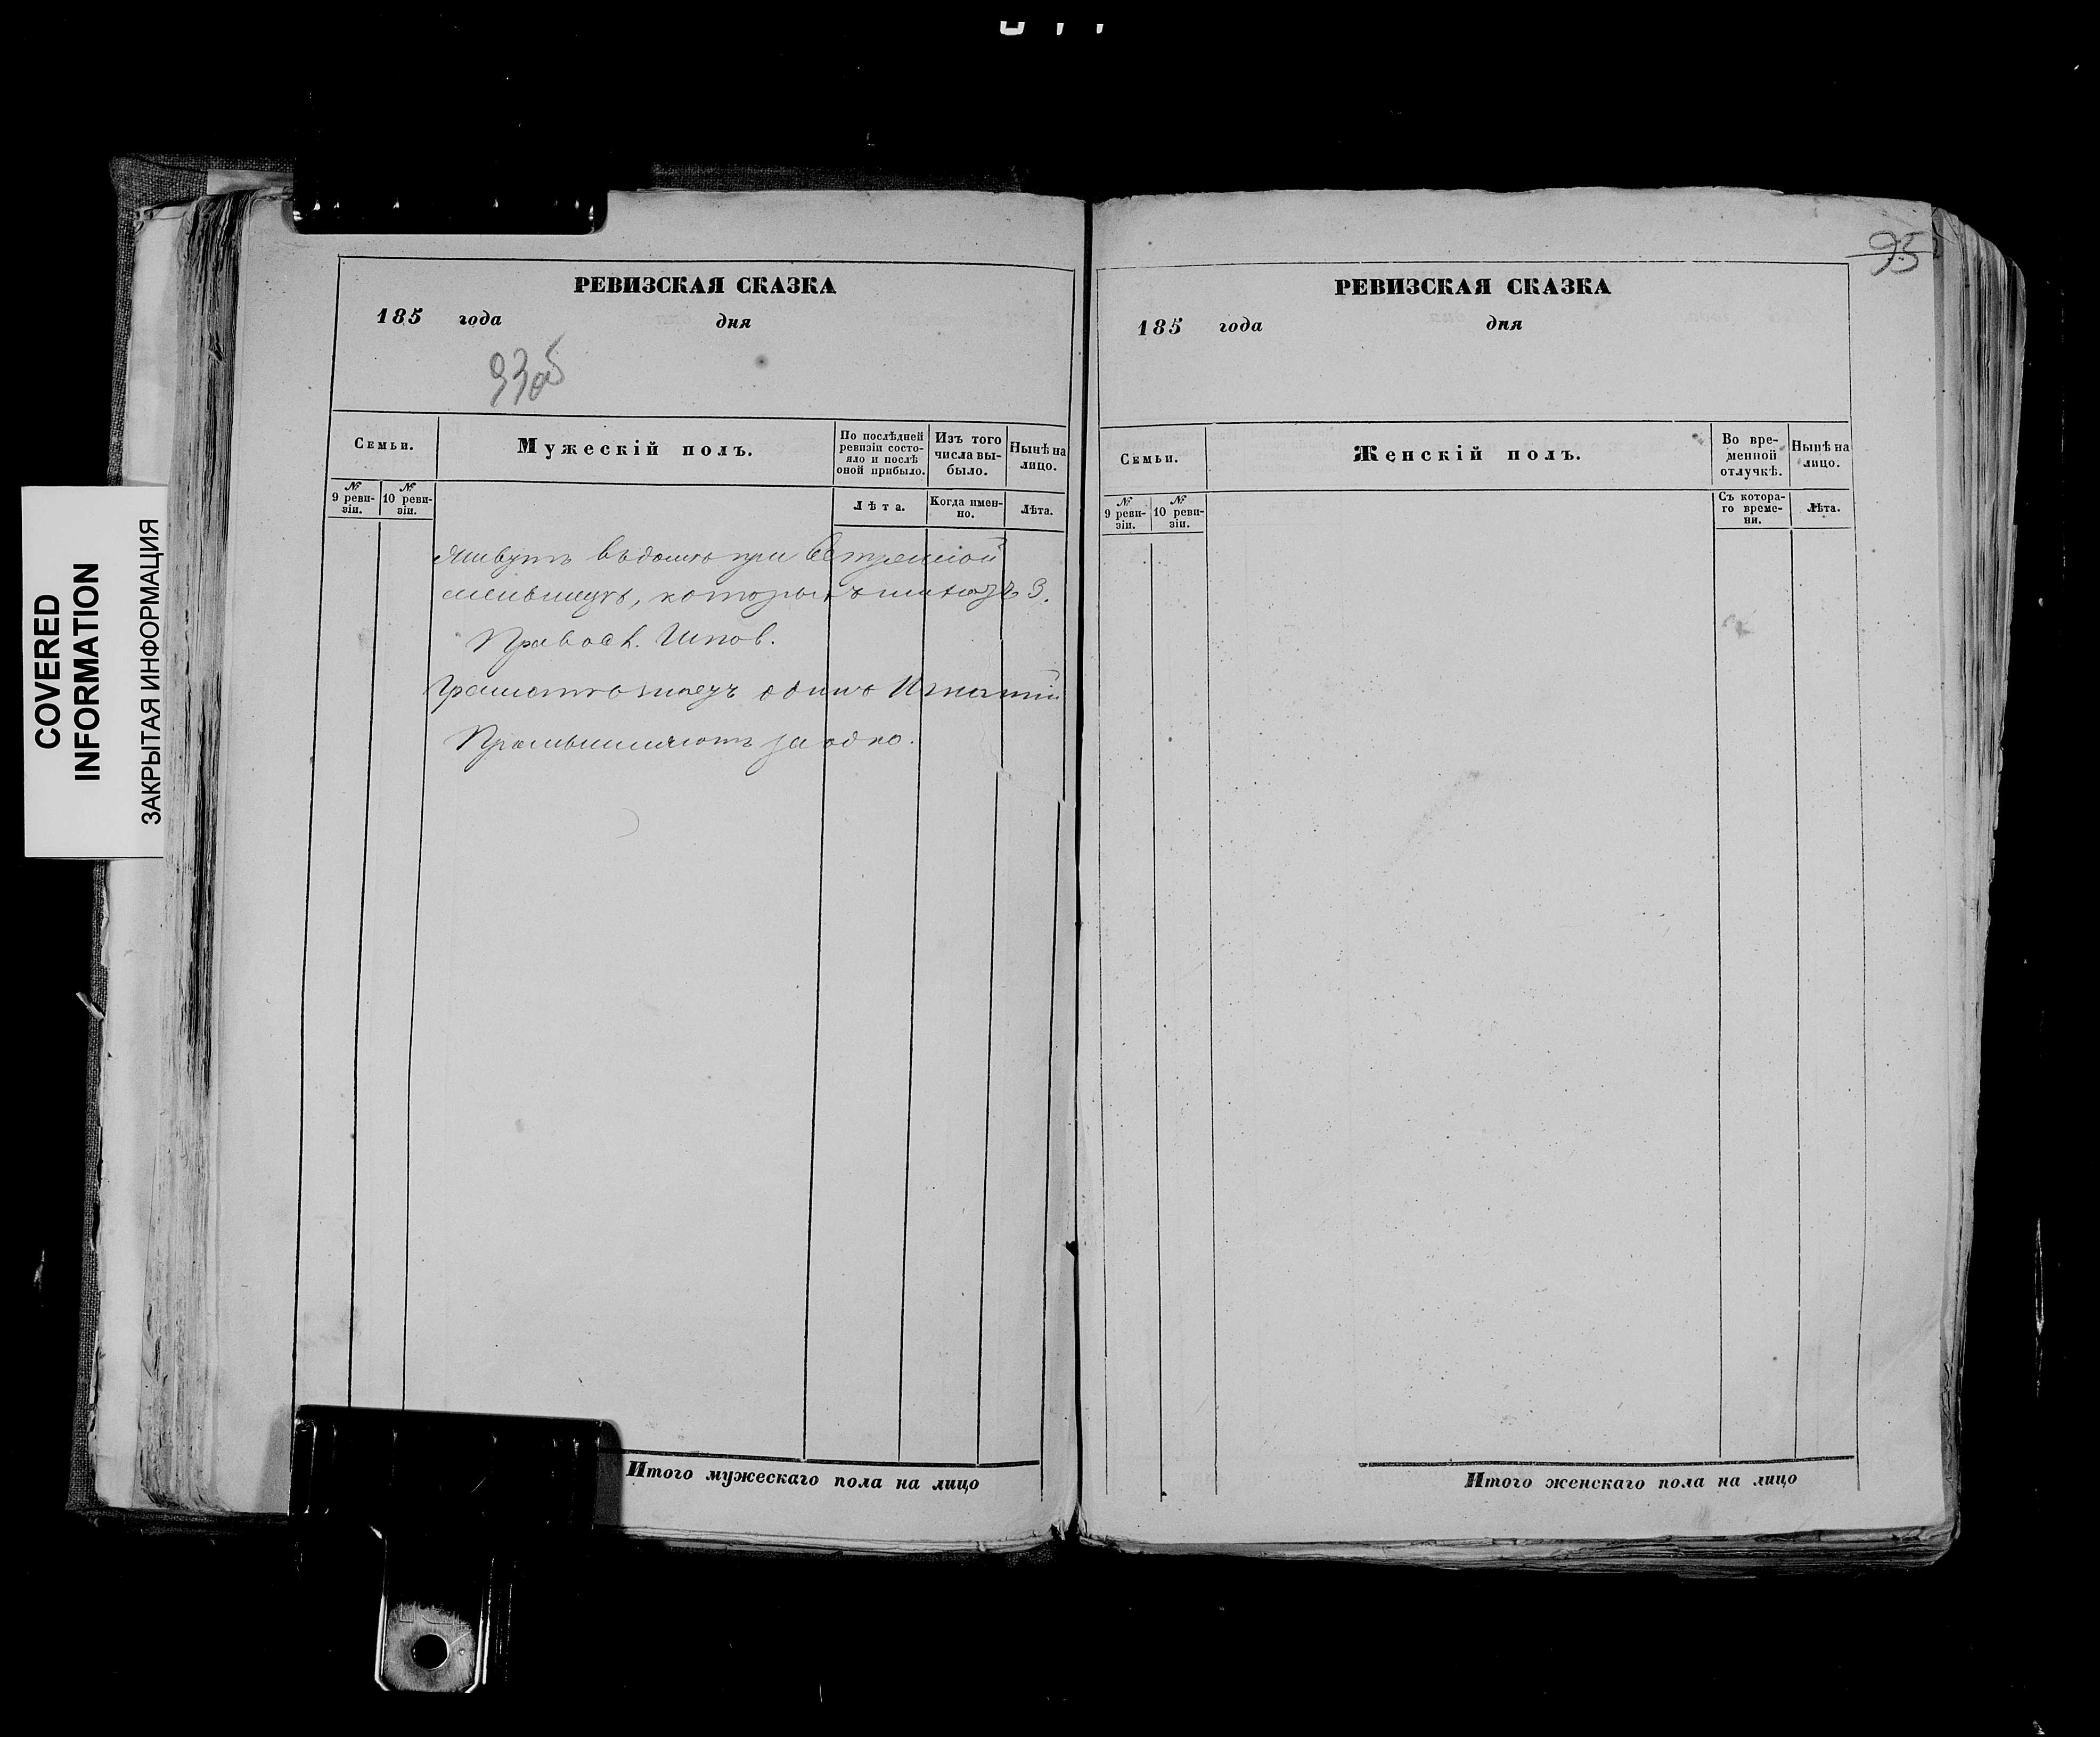 COVERED
INFORMATION
ЗАКРЫТАЯ ИНФОРМАЦИЯ
РЕВИЗСКАЯ СКАЗКА
185 года дня
93об
Семьи.
Мужескій полъ.
По послѣдней ревизіи состояло и послѣ оной прибыло.
Изъ того числа выбыло.
Нынѣ на лицо.
№ 9 ревизіи.
№ 10 ревизіи.
Лѣта.
Когда именно.
Лѣта.
Живутъ въ домѣ при
Правосл. Испов.
Грамотѣ знаетъ одинъ Игнатій
Промышляютъ за одно.
Итого мужескаго пола на лицо
95
РЕВИЗСКАЯ СКАЗКА
185 года дня
Семьи.
Женскій полъ.
Во временной отлучкѣ.
Нынѣ на лицо.
№ 9 ревизіи.
№ 10 ревизіи.
Съ котораго времени.
Лѣта.
Итого женскаго пола на лицо